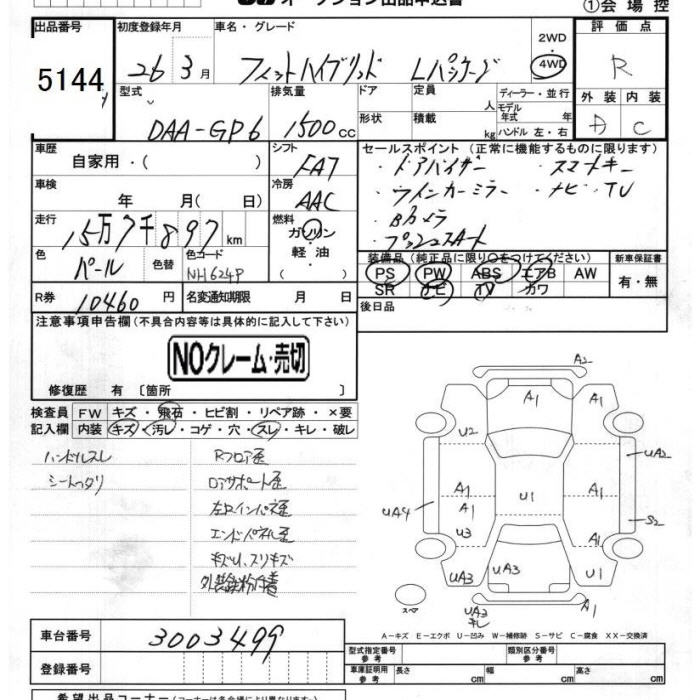 オークション出品申込書
①会場控
出品番号
5144
初度登録年月
26年3月
車名・グレード
フィットハイブリッド Lパッケージ
2WD
4WD
評価点
R
型式
DAA-GP6
排気量
1500cc
ドア
形状
定員
人
積載
kg
ディーラー・並行
モデル年式 年
ハンドル 左・右
外装 内装
D C
車歴
自家用・( )
シフト
FA7
冷房
AAC
車検
年 月( 日)
走行
15万7千897km
燃料
ガソリン
軽油
色
パール
色替
色コード
NH624P
R券
10460円
名変通知期限 月 日
セールスポイント(正常に機能するものに限ります)
・ドアバイザー ・スマートキー
・ウインカーミラー ・ナビ・TV
・Bカメラ
・プッシュスタート
装備品(純正品に限り○をつけてください)
PS PW ABS エアB AW
SR ナビ TV カワ
新車保証書
有・無
後日品
注意事項申告欄(不具合内容等は具体的に記入して下さい)
NOクレーム・売切
修復歴 有[箇所 ]
検査員 FW キズ・飛石・ヒビ割・リペア跡・×要
記入欄 内装 キズ・汚レ・コゲ・穴・スレ・キレ・破レ
ハンドルスレ
シートヘタリ
Rフロア歪
ロアサポート歪
左右インパネ歪
エンドパネル歪
キズU、スリキズ
外装鉄粉付着
A2
A1
A1
U2
UA2
A1
A1
U1
A1
UA4
S2
U3
A1
UA3
UA3
U1
スペア
UA3
キレ
A1
A-キズ E-エクボ U-凹み W-補修跡 S-サビ C-腐食 XX-交換済
車台番号
3003499
登録番号
型式指定番号
参考
類別区分番号
参考
車庫証明用
参考
長さ cm 幅 cm 高さ cm
希望出品コーナー